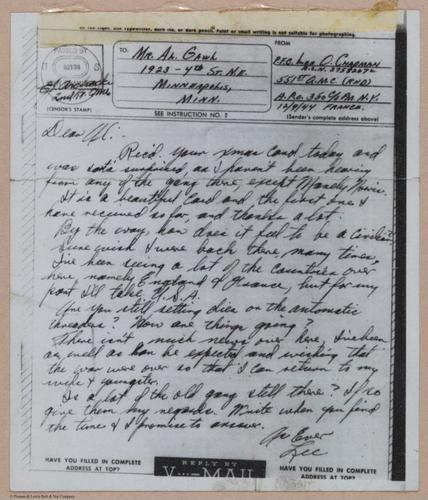 use type, Use typewriter, dark ink, or dark pencil. Paint or small writing is not suitable for photographing.
PASSED BY
(CENSOR'S STAMP)
TO:
MR. AL. GAWL
1923 - 4th ST. N.E.
MINNEAPOLIS,
MINN.
SEE INSTRUCTION NO. 2
FROM
P.F.C. Lee O. CHAPMAN
551st A.M.C. (RND)
A.P.O. 350 % P.M. N.Y.
12/8/44 FRANCE.
(Sender's complete address above)
Dear Al:
Rec'd your xmas card today and
was sorta surprised, as I haven't been hearing
from any of the gang there, except Manely Norris.
It is a beautiful card and the first one I
have received so far, and thanks a lot.
By the way, how does it feel to be a civilian
Sure wish I were back there, many times.
I've been seeing a lot of the countries over
here, namely England & France, but for my
part I'll take U.S.A.
Are you still setting dies on the automatic
threaders? How are things going?
There isn't much news over here, I've been
as well as can be expected and wishing that
the war were over so that I can return to my
wife & youngster.
Is a lot of the old gang still there? If so
give them my regards. Write when you find
the time & I promise to answer.
As Ever
Lee
HAVE YOU FILLED IN COMPLETE
ADDRESS AT TOP?
REPLY BY
V···-MAIL
HAVE YOU FILLED IN COMPLETE
ADDRESS AT TOP?